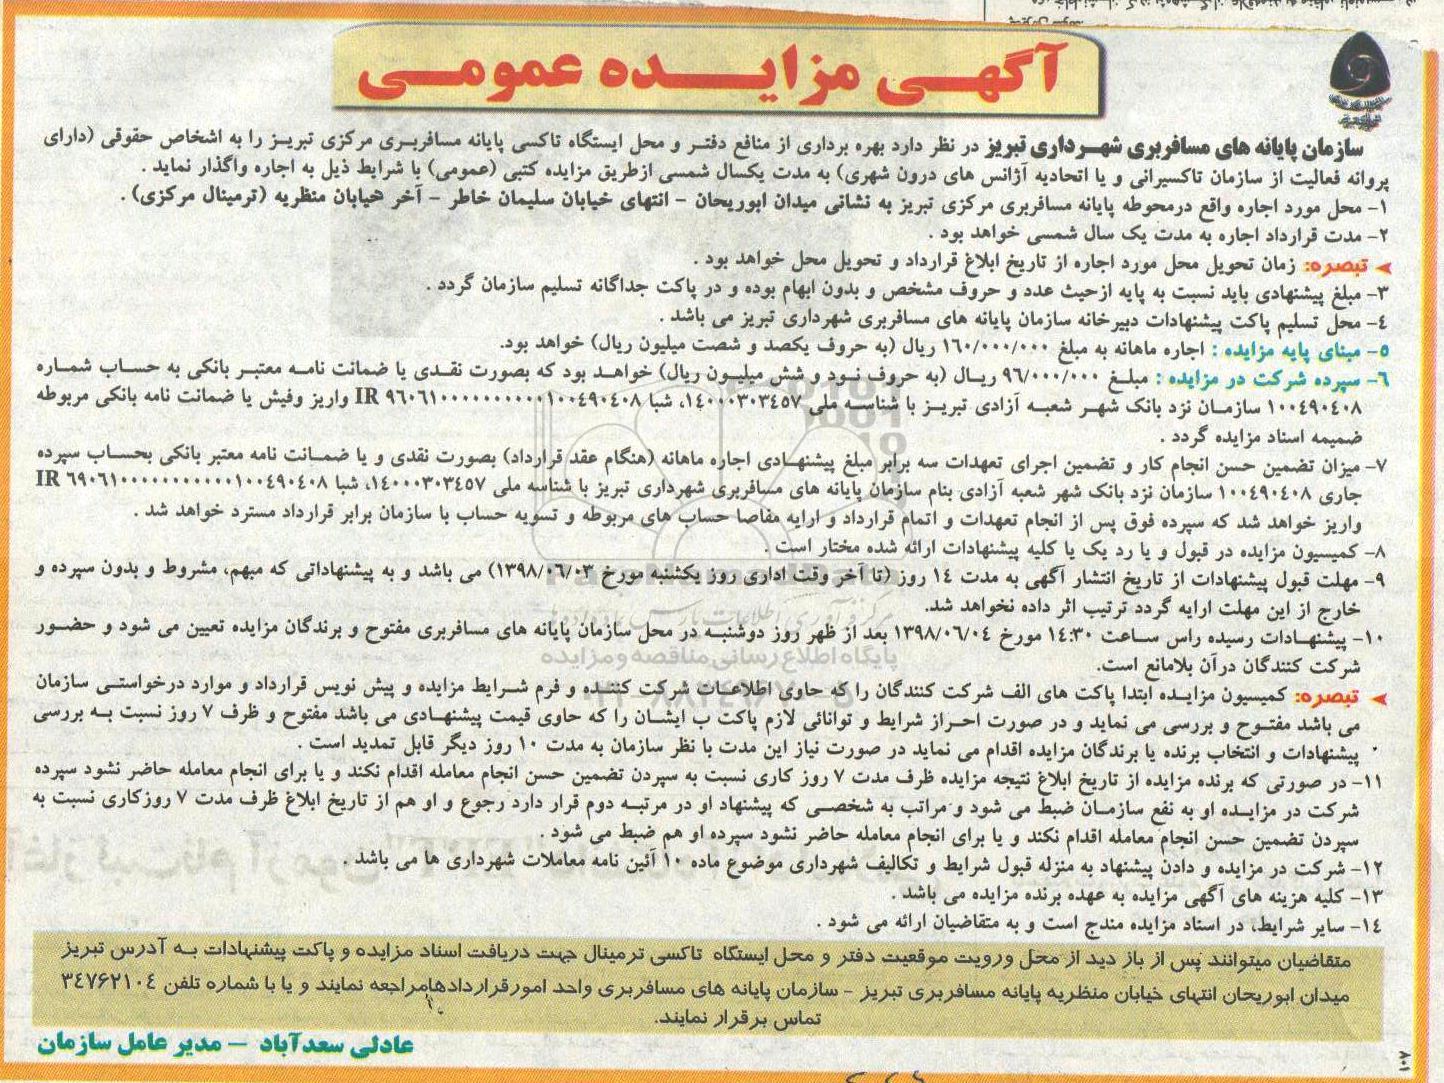 آگهی مزایده عمومی
سازمان پایانه های مسافربری شهرداری تبریز در نظر دارد بهره برداری از منافع دفتر و محل ایستگاه تاکسی پایانه مسافربری مرکزی تبریز را به اشخاص حقوقی (دارای
پروانه فعالیت از سازمان تاکسیرانی و یا اتحادیه آژانس های درون شهری) به مدت یکسال شمسی ازطریق مزایده کتبی (عمومی) با شرایط ذیل به اجاره واگذار نماید .
۱- محل مورد اجاره واقع درمحوطه پایانه مسافربری مرکزی تبریز به نشانی میدان ابوریحان - انتهای خیابان سلیمان خاطر - آخر خیابان منظریه (ترمینال مرکزی) .
۲- مدت قرارداد اجاره به مدت یک سال شمسی خواهد بود .
تبصره: زمان تحویل محل مورد اجاره از تاریخ ابلاغ قرارداد و تحویل محل خواهد بود .
۳- مبلغ پیشنهادی باید نسبت به پایه ازحیث عدد و حروف مشخص و بدون ابهام بوده و در پاکت جداگانه تسلیم سازمان گردد .
۴- محل تسلیم پاکت پیشنهادات دبیرخانه سازمان پایانه های مسافربری شهرداری تبریز می باشد .
۵- مبنای پایه مزایده : اجاره ماهانه به مبلغ ۱۶۰/۰۰۰/۰۰۰ ریال (به حروف یکصد و شصت میلیون ریال) خواهد بود.
۶- سپرده شرکت در مزایده : مبلغ ۹۶/۰۰۰/۰۰۰ ریال (به حروف نود و شش میلیون ریال) خواهد بود که بصورت نقدی یا ضمانت نامه معتبر بانکی به حساب شماره
۱۰۰۴۹۰۴۰۸ سازمان نزد بانک شهر شعبه آزادی تبریز با شناسه ملی ۱۴۰۰۰۳۰۳۴۵۷، شبا IR ۹۶۰۶۱۰۰۰۰۰۰۰۰۰۰۱۰۰۴۹۰۴۰۸ واریز وفیش یا ضمانت نامه بانکی مربوطه
ضمیمه اسناد مزایده گردد .
۷- میزان تضمین حسن انجام کار و تضمین اجرای تعهدات سه برابر مبلغ پیشنهادی اجاره ماهانه (هنگام عقد قرارداد) بصورت نقدی و یا ضمانت نامه معتبر بانکی بحساب سپرده
جاری ۱۰۰۴۹۰۴۰۸ سازمان نزد بانک شهر شعبه آزادی بنام سازمان پایانه های مسافربری شهرداری تبریز با شناسه ملی ۱۴۰۰۰۳۰۳۴۵۷، شبا IR ۶۹۰۶۱۰۰۰۰۰۰۰۰۰۰۰۱۰۰۴۹۰۴۰۸
واریز خواهد شد که سپرده فوق پس از انجام تعهدات و اتمام قرارداد و ارایه مفاصا حساب های مربوطه و تسویه حساب با سازمان برابر قرارداد مسترد خواهد شد .
۸- کمیسیون مزایده در قبول و یا رد یک یا کلیه پیشنهادات ارائه شده مختار است .
۹- مهلت قبول پیشنهادات از تاریخ انتشار آگهی به مدت ۱۴ روز (تا آخر وقت اداری روز یکشنبه مورخ ۱۳۹۸/۰۶/۰۳) می باشد و به پیشنهاداتی که مبهم، مشروط و بدون سپرده و
خارج از این مهلت ارایه گردد ترتیب اثر داده نخواهد شد.
۱۰- پیشنهادات رسیده راس ساعت ۱۴:۳۰ مورخ ۱۳۹۸/۰۶/۰۴ بعد از ظهر روز دوشنبه در محل سازمان پایانه های مسافربری مفتوح و برندگان مزایده تعیین می شود و حضور
شرکت کنندگان درآن بلامانع است.
تبصره: کمیسیون مزایده ابتدا پاکت های الف شرکت کنندگان را که حاوی اطلاعات شرکت کننده و فرم شرایط مزایده و پیش نویس قرارداد و موارد درخواستی سازمان
می باشد مفتوح و بررسی می نماید و در صورت احراز شرایط و توانائی لازم پاکت ب ایشان را که حاوی قیمت پیشنهادی می باشد مفتوح و ظرف ۷ روز نسبت به بررسی
پیشنهادات و انتخاب برنده یا برندگان مزایده اقدام می نماید در صورت نیاز این مدت با نظر سازمان به مدت ۱۰ روز دیگر قابل تمدید است .
۱۱- در صورتی که برنده مزایده از تاریخ ابلاغ نتیجه مزایده ظرف مدت ۷ روز کاری نسبت به سپردن تضمین حسن انجام معامله اقدام نکند و یا برای انجام معامله حاضر نشود سپرده
شرکت در مزایده او به نفع سازمان ضبط می شود و مراتب به شخصی که پیشنهاد او در مرتبه دوم قرار دارد رجوع و او هم از تاریخ ابلاغ ظرف مدت ۷ روزکاری نسبت به
سپردن تضمین حسن انجام معامله اقدام نکند و یا برای انجام معامله حاضر نشود سپرده او هم ضبط می شود .
۱۲- شرکت در مزایده و دادن پیشنهاد به منزله قبول شرایط و تکالیف شهرداری موضوع ماده ۱۰ آئین نامه معاملات شهرداری ها می باشد .
۱۳- کلیه هزینه های آگهی مزایده به عهده برنده مزایده می باشد .
۱۴- سایر شرایط، در اسناد مزایده مندج است و به متقاضیان ارائه می شود .
متقاضیان میتوانند پس از باز دید از محل ورویت موقعیت دفتر و محل ایستگاه تاکسی ترمینال جهت دریافت اسناد مزایده و پاکت پیشنهادات به آدرس تبریز
میدان ابوریحان انتهای خیابان منظریه پایانه مسافربری تبریز - سازمان پایانه های مسافربری واحد امورقراردادهامراجعه نمایند و یا با شماره تلفن ۳۴۷۶۲۱۰۴
تماس برقرار نمایند.
عادلی سعدآباد – مدیر عامل سازمان
۱۰۸
پایگاه اطلاع رسانی مناقصه و مزایده